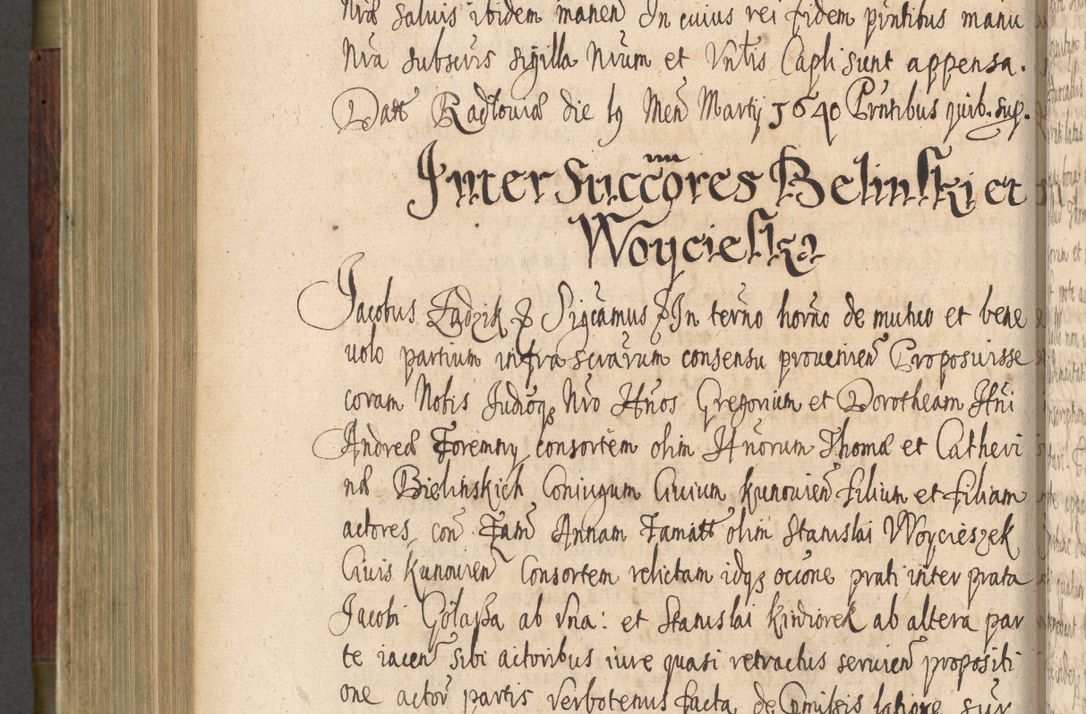 Nræ saluis ibidem manen In cuius rei fidem pñtibus manu
Nra subscris sigilla Nrum et Vntis Capli sunt appensa.
Datt Radłouiæ die 19 Men Martij 1640 Prntibus quib. sup.
Inter Succres Belinski et
Woycieska
Jacobus Zadzik & Sigcamus & In terno horno de mutuo et bene
uolo partium infra scrarum consensu proueniren Proposuisse
coram Nobis Judioq3 Nro Hnos Gregorium et Dorotheam Hni
Andreæ Foremny consortem olim Hnorum Thomæ et Catheri
næ Bielinskich Coniugum Ciuium Kunouien filium et filiam
actores con Fam Annam Famatt olim Stanislai Woycieszek
Ciuis Kunouien Consortem relictam idq3 occone prati inter prata
Jacobi Gołaßa ab vna: et Stanislai Kindiorek ab altera par
te iacen sibi actoribus iure quasi retractus seruien propositi
one actor partis verbotenus facta de Pmissis latiore sur